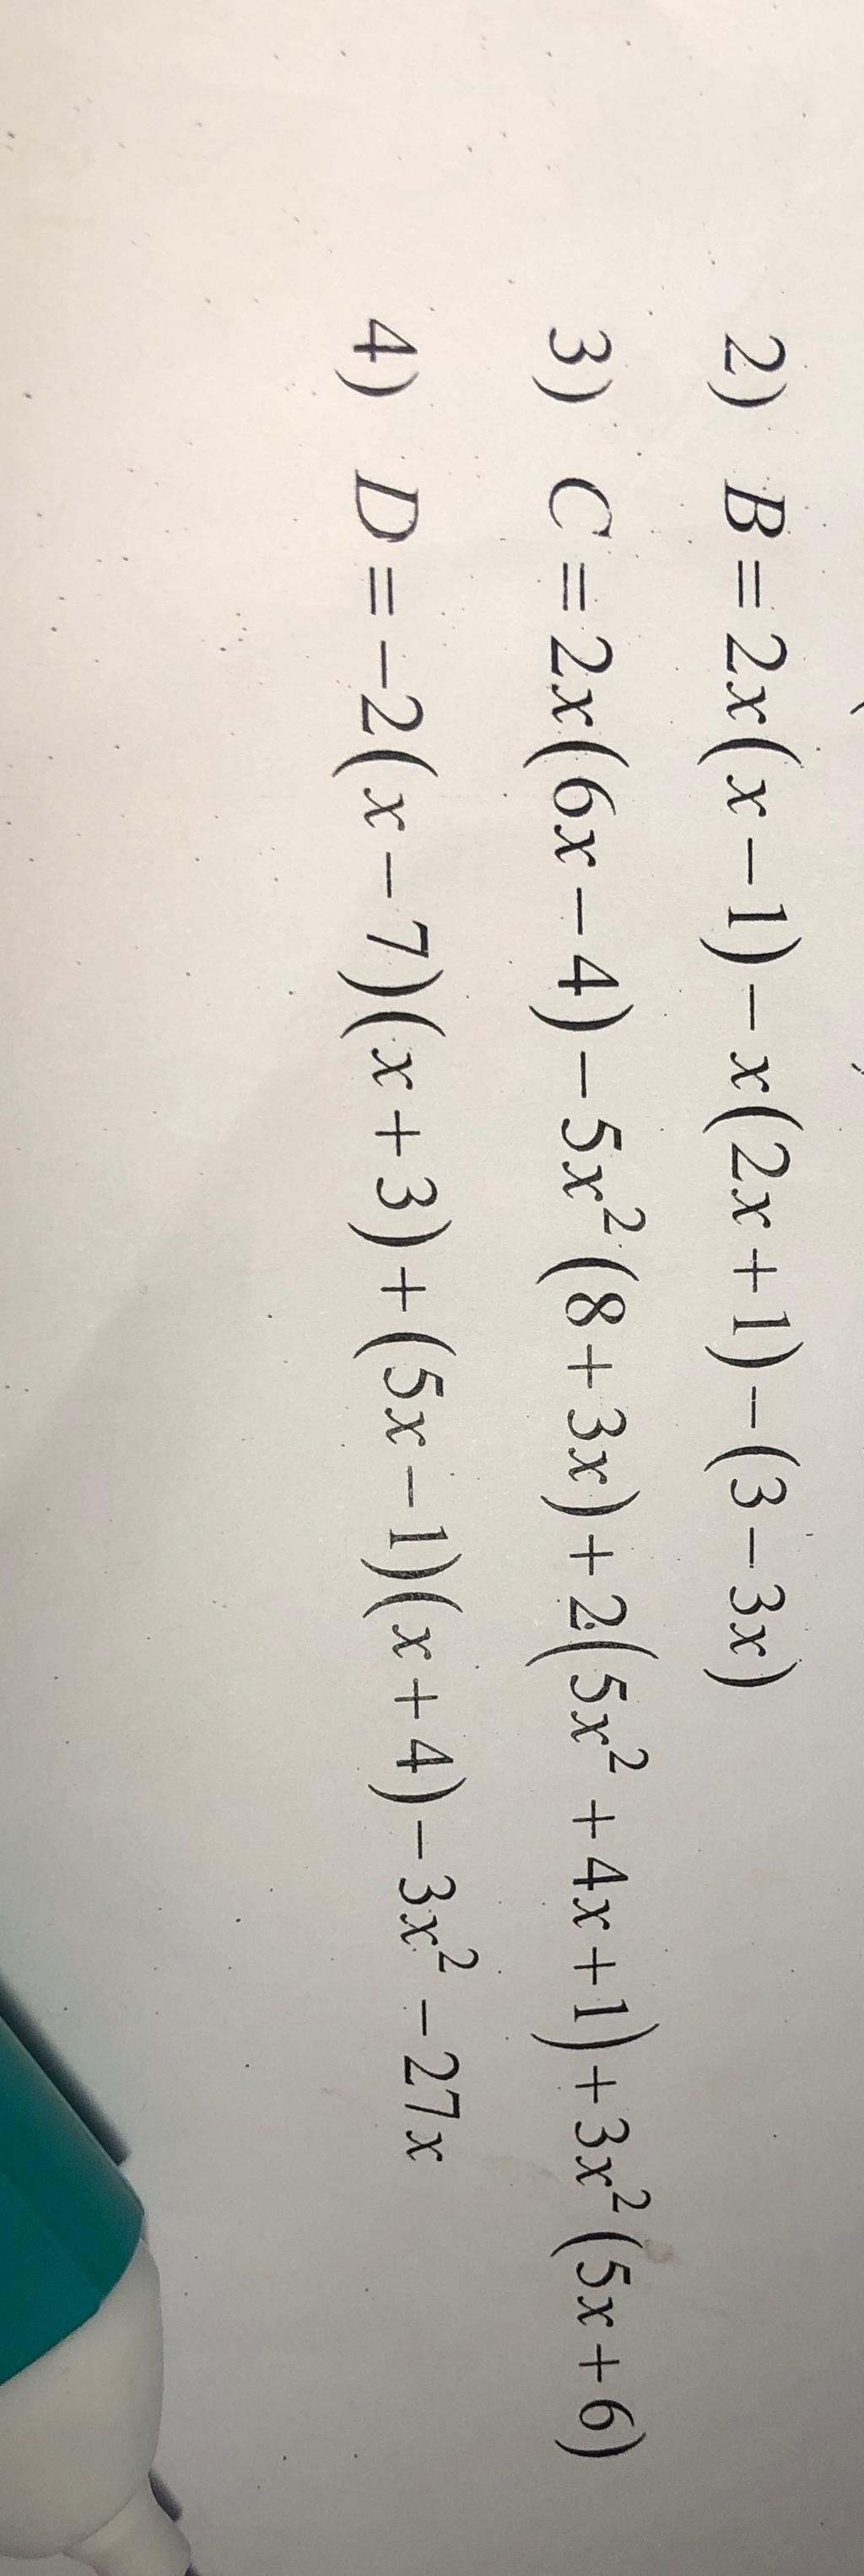 2) B = 2x(x − 1) − x(2x + 1) − (3 − 3x)
3) C = 2x(6x − 4) − 5x²(8 + 3x) + 2(5x² + 4x + 1) + 3x²(5x + 6)
4) D = −2(x − 7)(x + 3) + (5x − 1)(x + 4) − 3x² − 27x